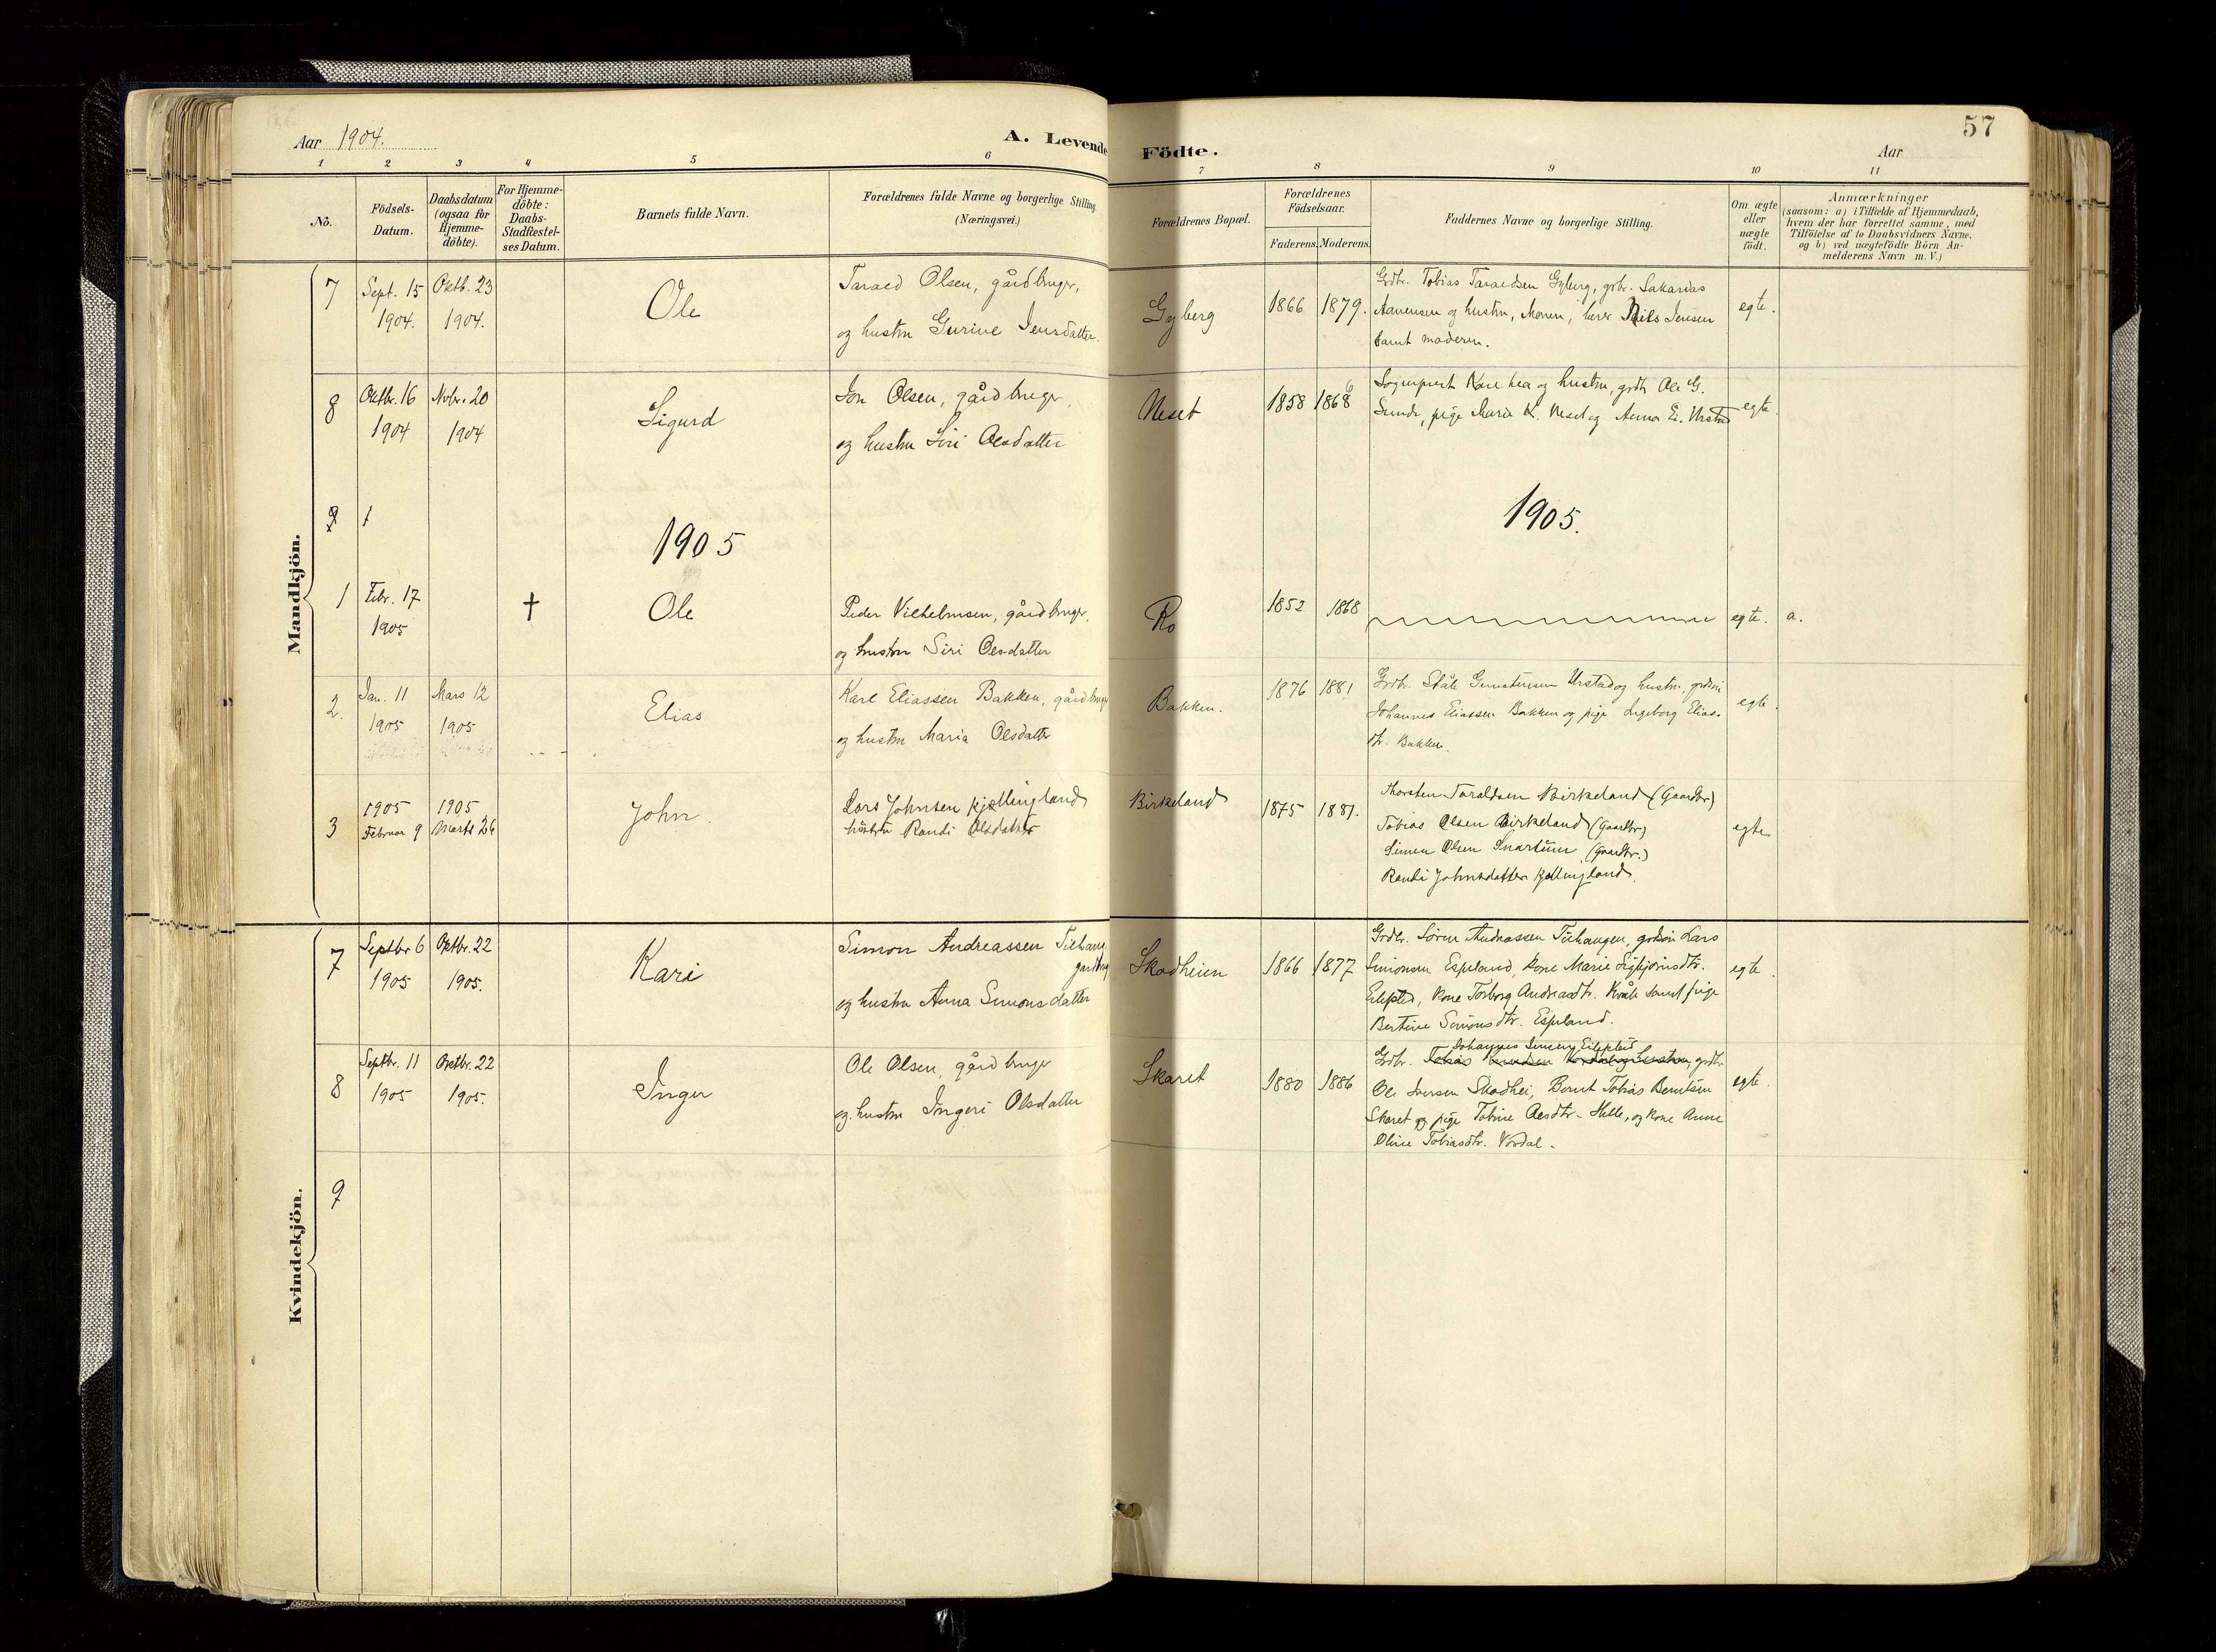 57
Aar 1904.
A. Levende Födte.
Aar
1 2 3 4 5 6 7 8 9 10 11
No.
Födsels-
Datum.
Daabsdatum
(ogsaa for
Hjemme-
döbte).
For Hjemme-
döbte:
Daabs-
Stadfestel-
ses Datum.
Barnets fulde Navn.
Forældrenes fulde Navne og borgerlige Stilling
(Næringsvei.)
Forældrenes Bopæl.
Forældrenes
Födselsaar.
Faderens. Moderens.
Faddernes Navne og borgerlige Stilling.
Om ægte
eller
uægte
födt.
Anmærkninger
(saasom: a) i Tilfælde af Hjemmedaab,
hvem der har forrettet samme, med
Tilföielse af to Daabsvidners Navne.
og b) ved uægtefödte Börn An-
melderens Navn m. V.)
Mandkjön.
7
Sept. 15
1904.
Oktb. 23
1904.
Ole
Tarald Olsen, gårdbruger,
og hustru Gurine Jensdatter.
Gyberg
1866 1879.
Grdbr. Tobias Taraldsen Gyberg, grbr. Sakarias
Aanensen og hustru, Monen, lærer Nils Jensen
samt moderen.
egte.
8
Oktbr. 16
1904
Nvbr. 20
1904
Sigurd
Jon Olsen, gårdbruger,
og hustru Siri Olsdatter
Neset
1858 1868 6
Sogneprest Kare hea og hustru, grdbr Ole G.
Sunde, pige Maria K. Neset og Anna E. Urstad
egte.
9 1
1905
1905.
1
Febr. 17
1905
†
Ole
Peder Vilhelmsen, gårdbruger,
og hustru Siri Olsdatter
Ro
1852 1868
egte. a.
2.
Jan. 11
1905
Mars 12
1905
Elias
Karl Eliassen Bakken, gårdbruger
og hustru Maria Olsdatter
Bakken.
1876 1881
Grdbr. Ståle Gunstensen Urstad og hustru, grdsøn
Johannes Eliassen Bakken og pige Ingeborg Elias-
dtr. Bakken.
egte.
3
1905
Februar 9
1905
Marts 26
John.
Lars Johnsen Kjøllingland
hustru Randi Olsdatter
Birkeland
1875 1881.
Thorsten Taraldsen Birkeland (Gaardbr)
Tobias Olsen Birkeland (Gaardbr)
Simen Olsen Snartum (Gaardbr.)
Randi Johnsdatter Kjøllingland.
egte
Kvindekjön.
7
Septbr 6
1905
Oktbr. 22
1905.
Kari
Simon Andreassen Tiehaug
gårdbrug
og hustru Anna Simonsdatter
Skadheien
1866 1877
Grdbr. Søren Andreassen Tiehaugen, grdsøn Lars
Simonsen Espeland, kone Marie Sigbjørnsdtr.
Eilefsted, kone Torborg Andreasdtr. Kvåle samt pige
Bertine Simonsdtr. Espeland.
egte.
8
Septbr. 11
1905
Oktbr. 22
1905.
Inger
Ole Olsen, gårdbruger
og hustru Ingeri Olsdatter
Skaret
1880 1886
Johannes Jensen Eilefsted
Grdbr. Tobias Knudsen Vordal og hustru, grdbr.
Ole Iversen Skadhei, Bernt Tobias Berntsen
Skaret og pige Tobine Olsdtr. Helle, og kone Anne
Oline Tobiasdtr. Vordal.
egte.
9